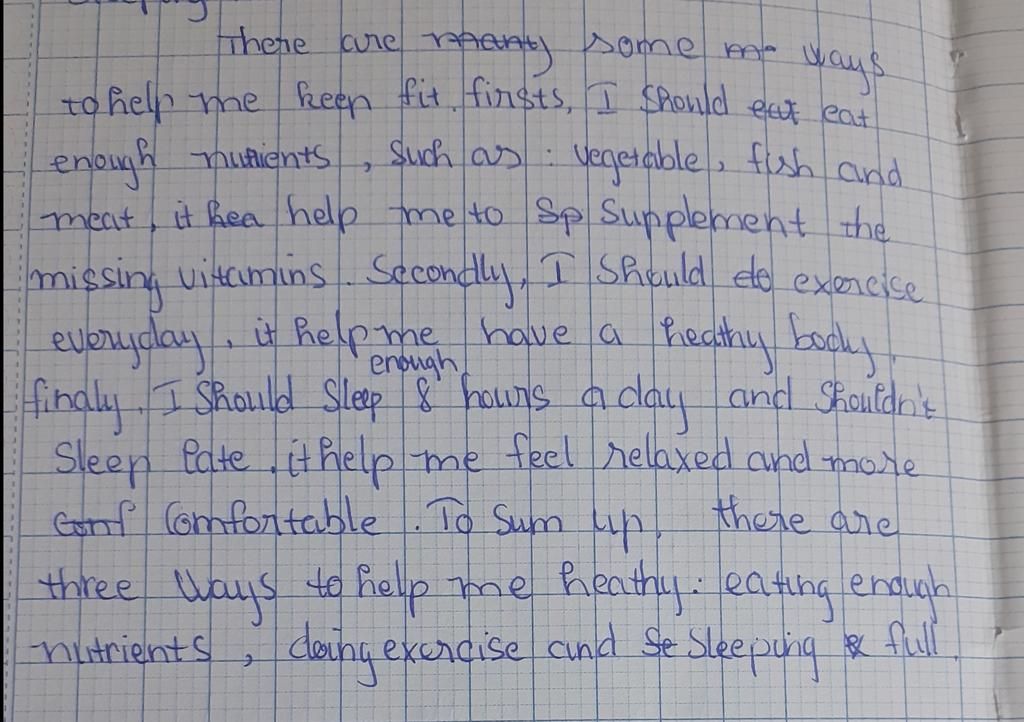 There are many some mo ways
to help me keep fit. firsts, I should eat eat
enough nutrients, such as : vegetable, fish and
meat, it hea help me to Sp supplement the
missing vitamins. Secondly, I should do exercise
everyday, it help me have a heathy body.
enough
finaly, I should sleep 8 hours a day and shouldn't
sleep late, it help me feel relaxed and more
comf comfortable. To sum up, there are
three ways to help me heathy: eating enough
nutrients, doing exercise and se sleeping full.